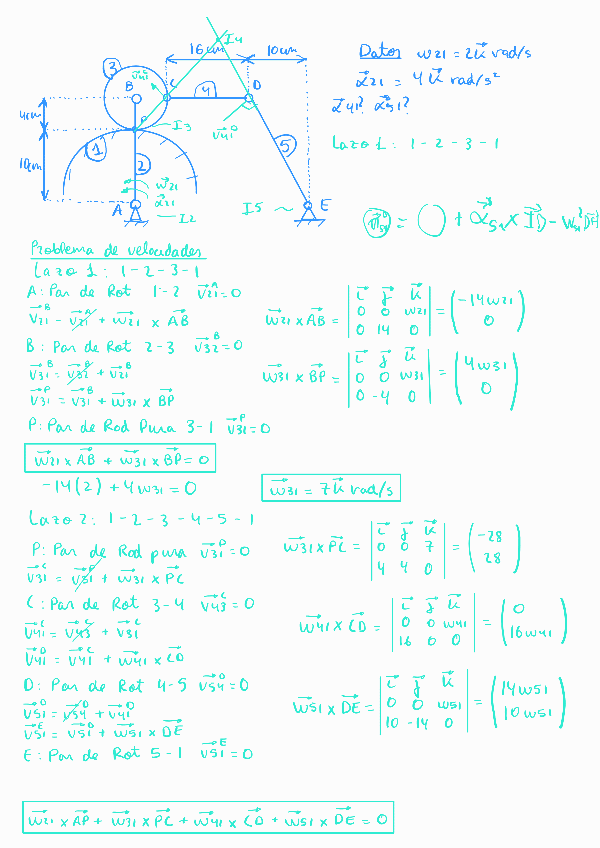 I4
16cm
10cm
Datos w21 = 2k rad/s
α21 = 4k rad/s²
α41? α51?
3
B
V41
C
4
D
V41
5
4cm
P
I3
1
2
10cm
w21
α21
A
I2
I5
E
Lazo 1: 1-2-3-1
= 0 + α51 x
Problema de velocidades
Lazo 1: 1-2-3-1
A: Par de Rot 1-2 V21^A = 0
V21^B = V21^A + w21 x AB
w21 x AB = | i j k | 0 0 w21 | 0 14 0 | = (-14w21 0)
B: Par de Rot 2-3 V32^B = 0
V31^B = V32^B + V21^B
V31^P = V31^B + w31 x BP
w31 x BP = | i j k | 0 0 w31 | 0 -4 0 | = (4w31 0)
P: Par de Rod Pura 3-1 V31^P = 0
w21 x AB + w31 x BP = 0
-14(2) + 4w31 = 0
w31 = 7k rad/s
Lazo 2: 1-2-3-4-5-1
P: Par de Rod pura V31^P = 0
V31^C = V31^P + w31 x PC
w31 x PC = | i j k | 0 0 7 | 4 4 0 | = (-28 28)
C: Par de Rot 3-4 V43^C = 0
V41^C = V43^C + V31^C
V41^D = V41^C + w41 x CD
w41 x CD = | i j k | 0 0 w41 | 16 0 0 | = (0 16w41)
D: Par de Rot 4-5 V54^D = 0
V51^D = V54^D + V41^D
V51^E = V51^D + w51 x DE
w51 x DE = | i j k | 0 0 w51 | 10 -14 0 | = (14w51 10w51)
E: Par de Rot 5-1 V51^E = 0
w21 x AP + w31 x PC + w41 x CD + w51 x DE = 0